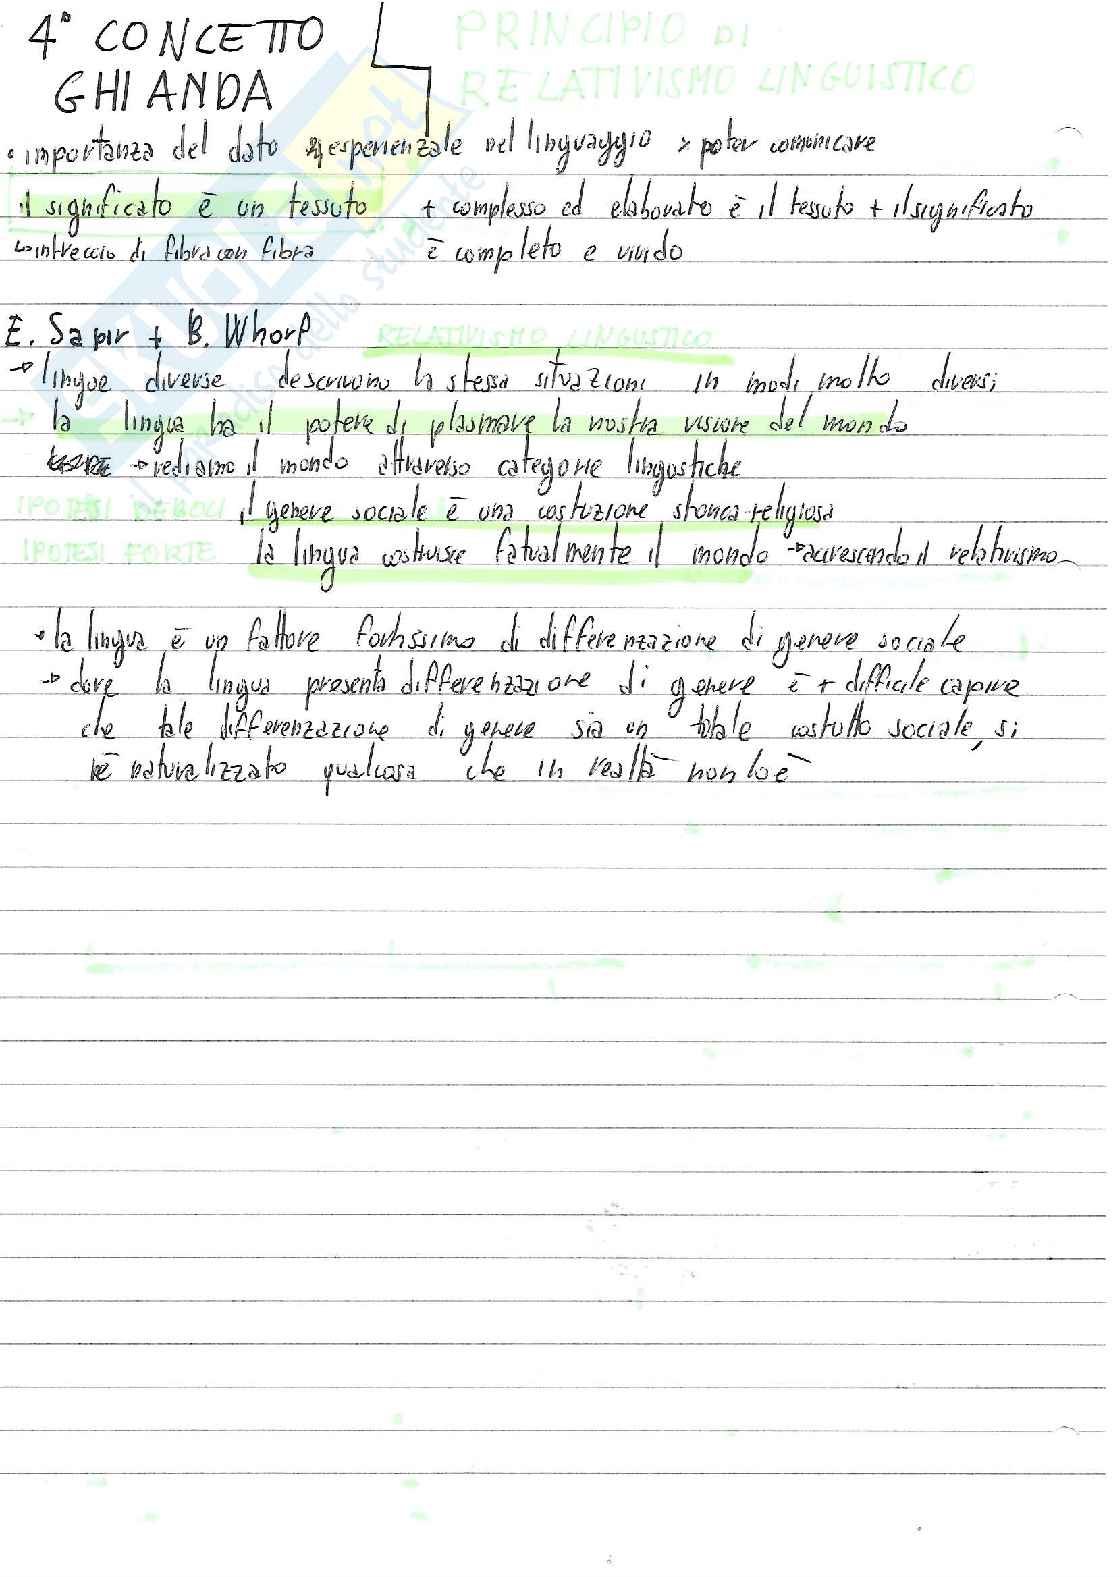 4° CONCETTO
GHIANDA
PRINCIPIO DI
RELATIVISMO LINGUISTICO
• importanza del dato esperienzale nel linguaggio > poter comunicare
il significato è un tessuto + complesso ed elaborato è il tessuto + il significato
↪ intreccio di fibra con fibra è completo e vivido
E. Sapir + B. Whorf RELATIVISMO LINGUISTICO
→ lingue diverse descrivono la stessa situazioni in modi molto diversi
→ la lingua ha il potere di plasmare la nostra visione del mondo
→ vediamo il mondo attraverso categorie linguistiche
IPOTESI DEBOLI il genere sociale è una costruzione storica-religiosa
IPOTESI FORTE la lingua costruisce fatualmente il mondo → accrescendo il relativismo
• la lingua è un fattore fortissimo di differenzazione di genere sociale
→ dove la lingua presenta differenzazione di genere è + difficile capire
che tale differenzazione di genere sia un totale costrutto sociale, si
è naturalizzato qualcosa che in realtà non lo è
SKUOLA.net
il paradiso dello studente